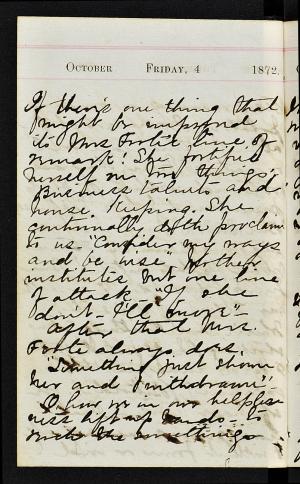 October Friday, 4 1872.
If there's one thing that
might be improved
it's Mrs Forte's line of
remark! She fortifies
herself on two things,
Business talents and
house. Keeping. She
continually doth proclaim
to us "Consider my ways
and be wise"
institutes but one line
of attack. "If she
don't I'll move"
After that Mrs.
Forte always does.
"Something just shown
her and I withdrawn"
O how we in our helpless
ness lift up hands to
such